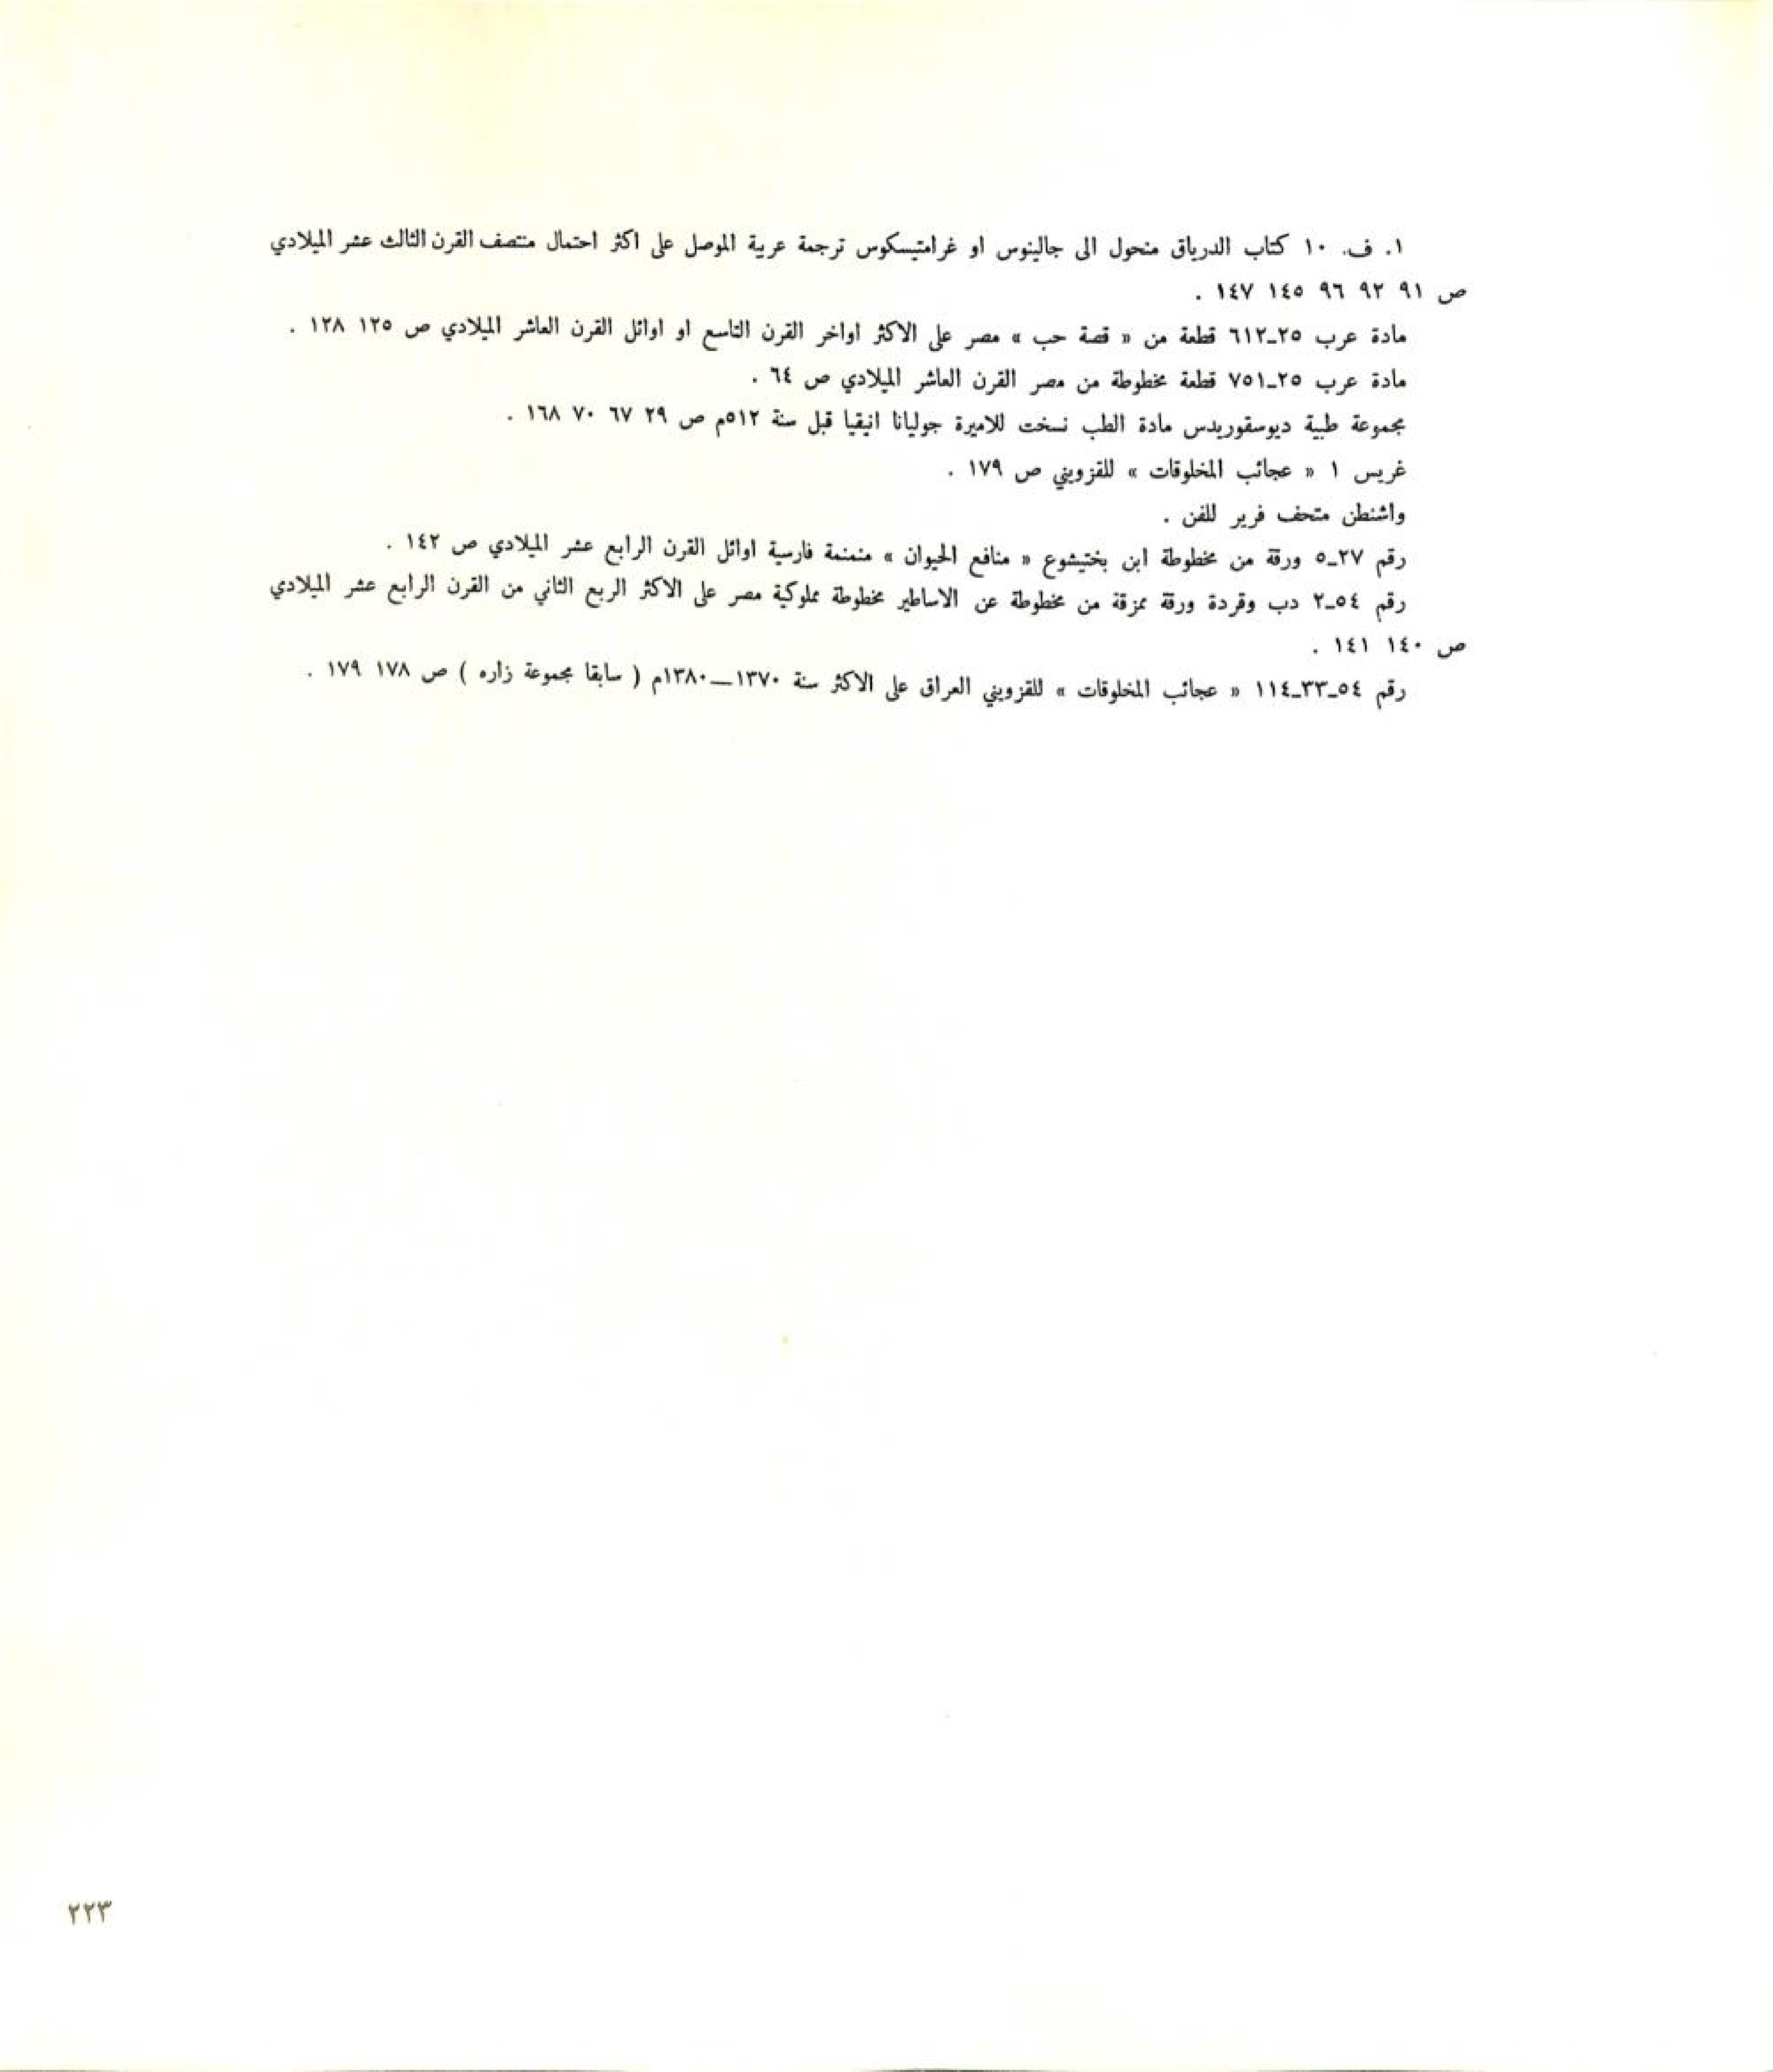 ١. ف. ١٠ كتاب الدرياق منحول الى جالينوس او غرامتيسكوس ترجمة عربية الموصل على اكثر احتمال منتصف القرن الثالث عشر الميلادي
ص ٩١ ٩٢ ٩٦ ١٤٥ ١٤٧ .
مادة عرب ٢٥ـ٦١٢ قطعة من « قصة حب » مصر على الاكثر اواخر القرن التاسع او اوائل القرن العاشر الميلادي ص ١٢٥ ١٢٨ .
مادة عرب ٢٥ـ٧٥١ قطعة مخطوطة من مصر القرن العاشر الميلادي ص ٦٤ .
مجموعة طبية ديوسقوريدس مادة الطب نسخت للاميرة جوليانا انيقيا قبل سنة ٥١٢م ص ٢٩ ٦٧ ٧٠ ١٦٨ .
غريس ١ « عجائب المخلوقات » للقزويني ص ١٧٩ .
واشنطن متحف فرير للفن .
رقم ٢٧ـ٥ ورقة من مخطوطة ابن بختيشوع « منافع الحيوان » منمنمة فارسية اوائل القرن الرابع عشر الميلادي ص ١٤٢ .
رقم ٥٤ـ٢ دب وقردة ورقة ممزقة من مخطوطة عن الاساطير مخطوطة مملوكية مصر على الاكثر الربع الثاني من القرن الرابع عشر الميلادي
ص ١٤٠ ١٤١ .
رقم ٥٤ـ٣٣ـ١١٤ « عجائب المخلوقات » للقزويني العراق على الاكثر سنة ١٣٧٠—١٣٨٠م ( سابقا مجموعة زاره ) ص ١٧٨ ١٧٩ .
٢٢٣